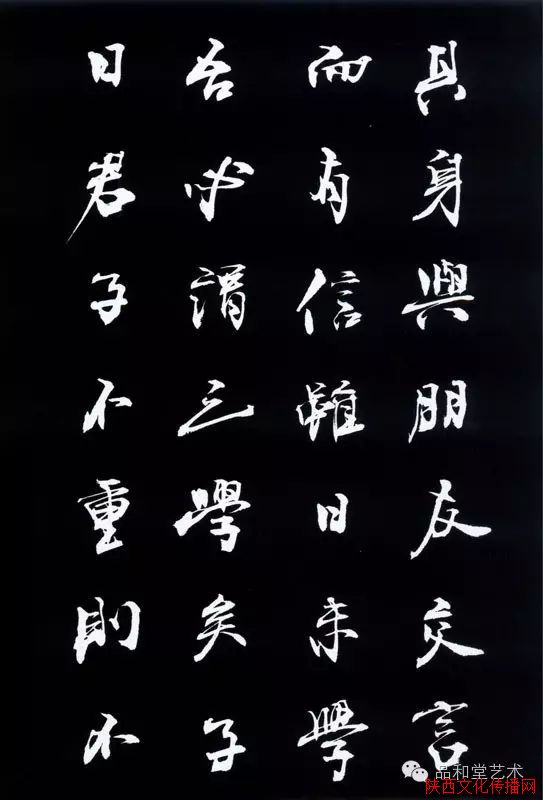 其身與朋友交言
而有信雖曰未學
吾必謂之學矣子
曰君子不重則不
品和堂艺术
陕西文化传播网